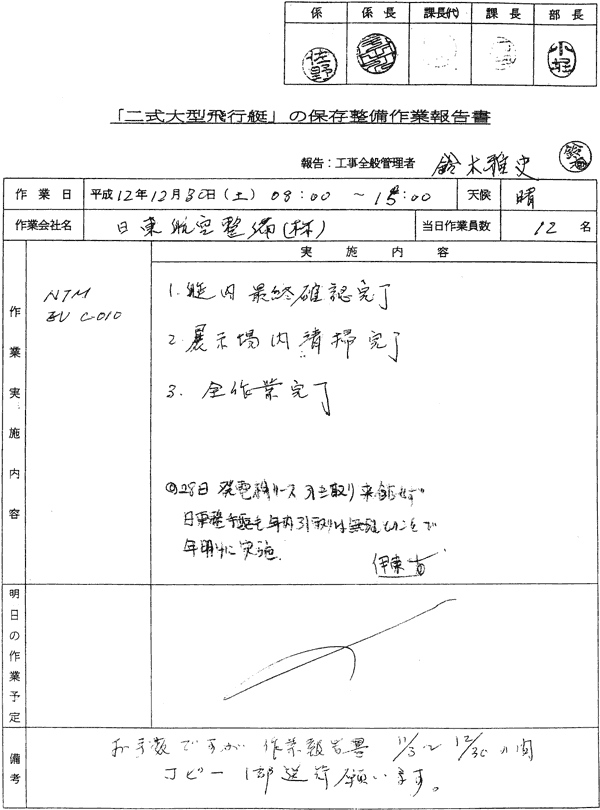 係 係長 課長(代) 課長 部長
佐野 小堀
「二式大型飛行艇」の保存整備作業報告書
報告：工事全般管理者 鈴木雅史
作業日 平成12年12月30日(土) 08:00 ～15:00 天候 晴
作業会社名 日東航空整備(株) 当日作業員数 12名
実施内容
作業実施内容
NTM
C-010
1. 艇内最終確認完了
2. 展示場内清掃完了
3. 全作業完了
28日 発電機リース 引き取り来館せず
年内引取りは
年明けに実施.
伊東
明日の作業予定
備考
お手数ですが 作業報告書 11/3～12/30の間
コピー1部送付願います。